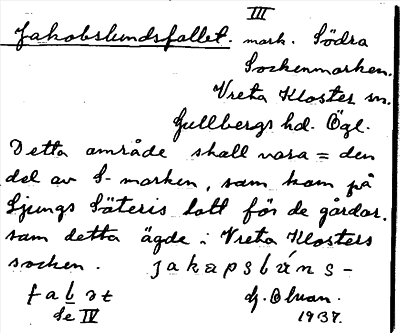 III
Jakobslundsfallet. mark. Södra
Sockenmarken.
Vreta Kloster sn.
Gullbergs hd. Ögl.
Detta område skall vara = den
del av S-marken, som kom på
Ljungs Säteris lott för de gårdar.
som detta ägde i Vreta Klosters
socken. jakapsbúns-
fabət
Se IV
1937.